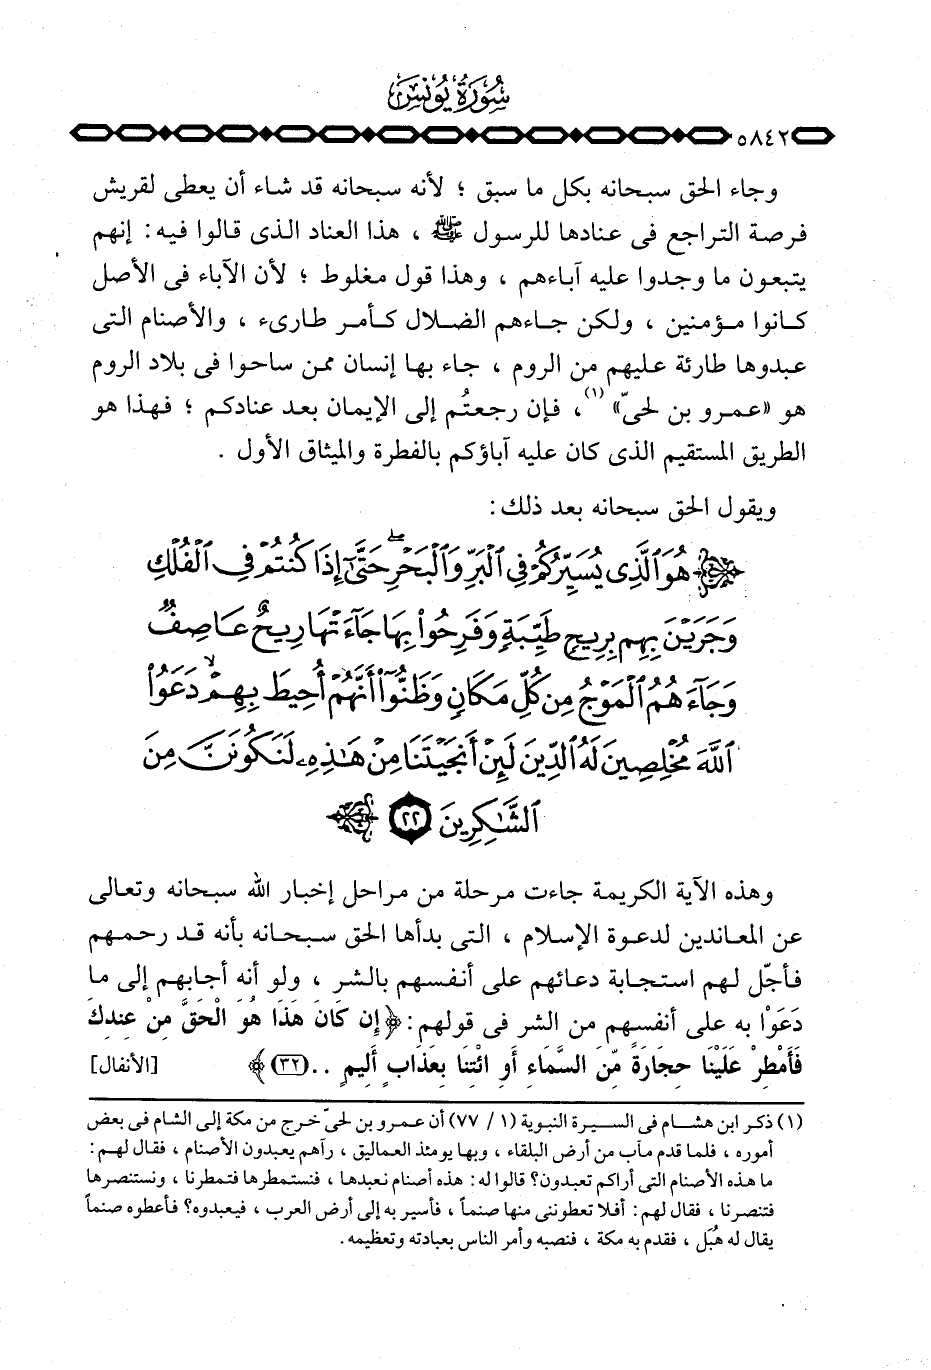 سُورَةُ يُونُسَ
٥٨٤٢
وجاء الحق سبحانه بكل ما سبق ؛ لأنه سبحانه قد شاء أن يعطى لقريش
فرصة التراجع فى عنادها للرسول ﷺ ، هذا العناد الذى قالوا فيه : إنهم
يتبعون ما وجدوا عليه آباءهم ، وهذا قول مغلوط ؛ لأن الآباء فى الأصل
كانوا مؤمنين ، ولكن جاءهم الضلال كأمر طارىء ، والأصنام التى
عبدوها طارئة عليهم من الروم ، جاء بها إنسان ممن ساحوا فى بلاد الروم
هو «عمرو بن لحىّ» (١) ، فإن رجعتُم إلى الإيمان بعد عنادكم ؛ فهذا هو
الطريق المستقيم الذى كان عليه آباؤكم بالفطرة والميثاق الأول .
ويقول الحق سبحانه بعد ذلك :
﴿ هُوَ ٱلَّذِى يُسَيِّرُكُمْ فِى ٱلْبَرِّ وَٱلْبَحْرِ ۖ حَتَّىٰٓ إِذَا كُنتُمْ فِى ٱلْفُلْكِ
وَجَرَيْنَ بِهِم بِرِيحٍ طَيِّبَةٍ وَفَرِحُوا۟ بِهَا جَآءَتْهَا رِيحٌ عَاصِفٌ
وَجَآءَهُمُ ٱلْمَوْجُ مِن كُلِّ مَكَانٍ وَظَنُّوٓا۟ أَنَّهُمْ أُحِيطَ بِهِمْ ۙ دَعَوُا۟
ٱللَّهَ مُخْلِصِينَ لَهُ ٱلدِّينَ لَئِنْ أَنجَيْتَنَا مِنْ هَٰذِهِۦ لَنَكُونَنَّ مِنَ
ٱلشَّٰكِرِينَ ٢٢ ﴾
وهذه الآية الكريمة جاءت مرحلة من مراحل إخبار الله سبحانه وتعالى
عن المعاندين لدعوة الإسلام ، التى بدأها الحق سبحانه بأنه قد رحمهم
فأجّل لهم استجابة دعائهم على أنفسهم بالشر ، ولو أنه أجابهم إلى ما
دَعَوْا به على أنفسهم من الشر فى قولهم : ﴿ إِن كَانَ هَذَا هُوَ الْحَقَّ مِنْ عِندِكَ
فَأَمْطِرْ عَلَيْنَا حِجَارَةً مِّنَ السَّمَاءِ أَوِ ائْتِنَا بِعَذَابٍ أَلِيمٍ .. (٣٢) ﴾ [الأنفال]
(١) ذكر ابن هشام فى السيرة النبوية (١ / ٧٧) أن عمرو بن لحىّ خرج من مكة إلى الشام فى بعض
أموره ، فلما قدم مآب من أرض البلقاء ، وبها يومئذ العماليق ، رآهم يعبدون الأصنام ، فقال لهم :
ما هذه الأصنام التى أراكم تعبدون؟ قالوا له : هذه أصنام نعبدها ، فنستمطرها فتمطرنا ، ونستنصرها
فتنصرنا ، فقال لهم : أفلا تعطوننى منها صنماً ، فأسير به إلى أرض العرب ، فيعبدوه؟ فأعطوه صنماً
يقال له هُبَل ، فقدم به مكة ، فنصبه وأمر الناس بعبادته وتعظيمه .